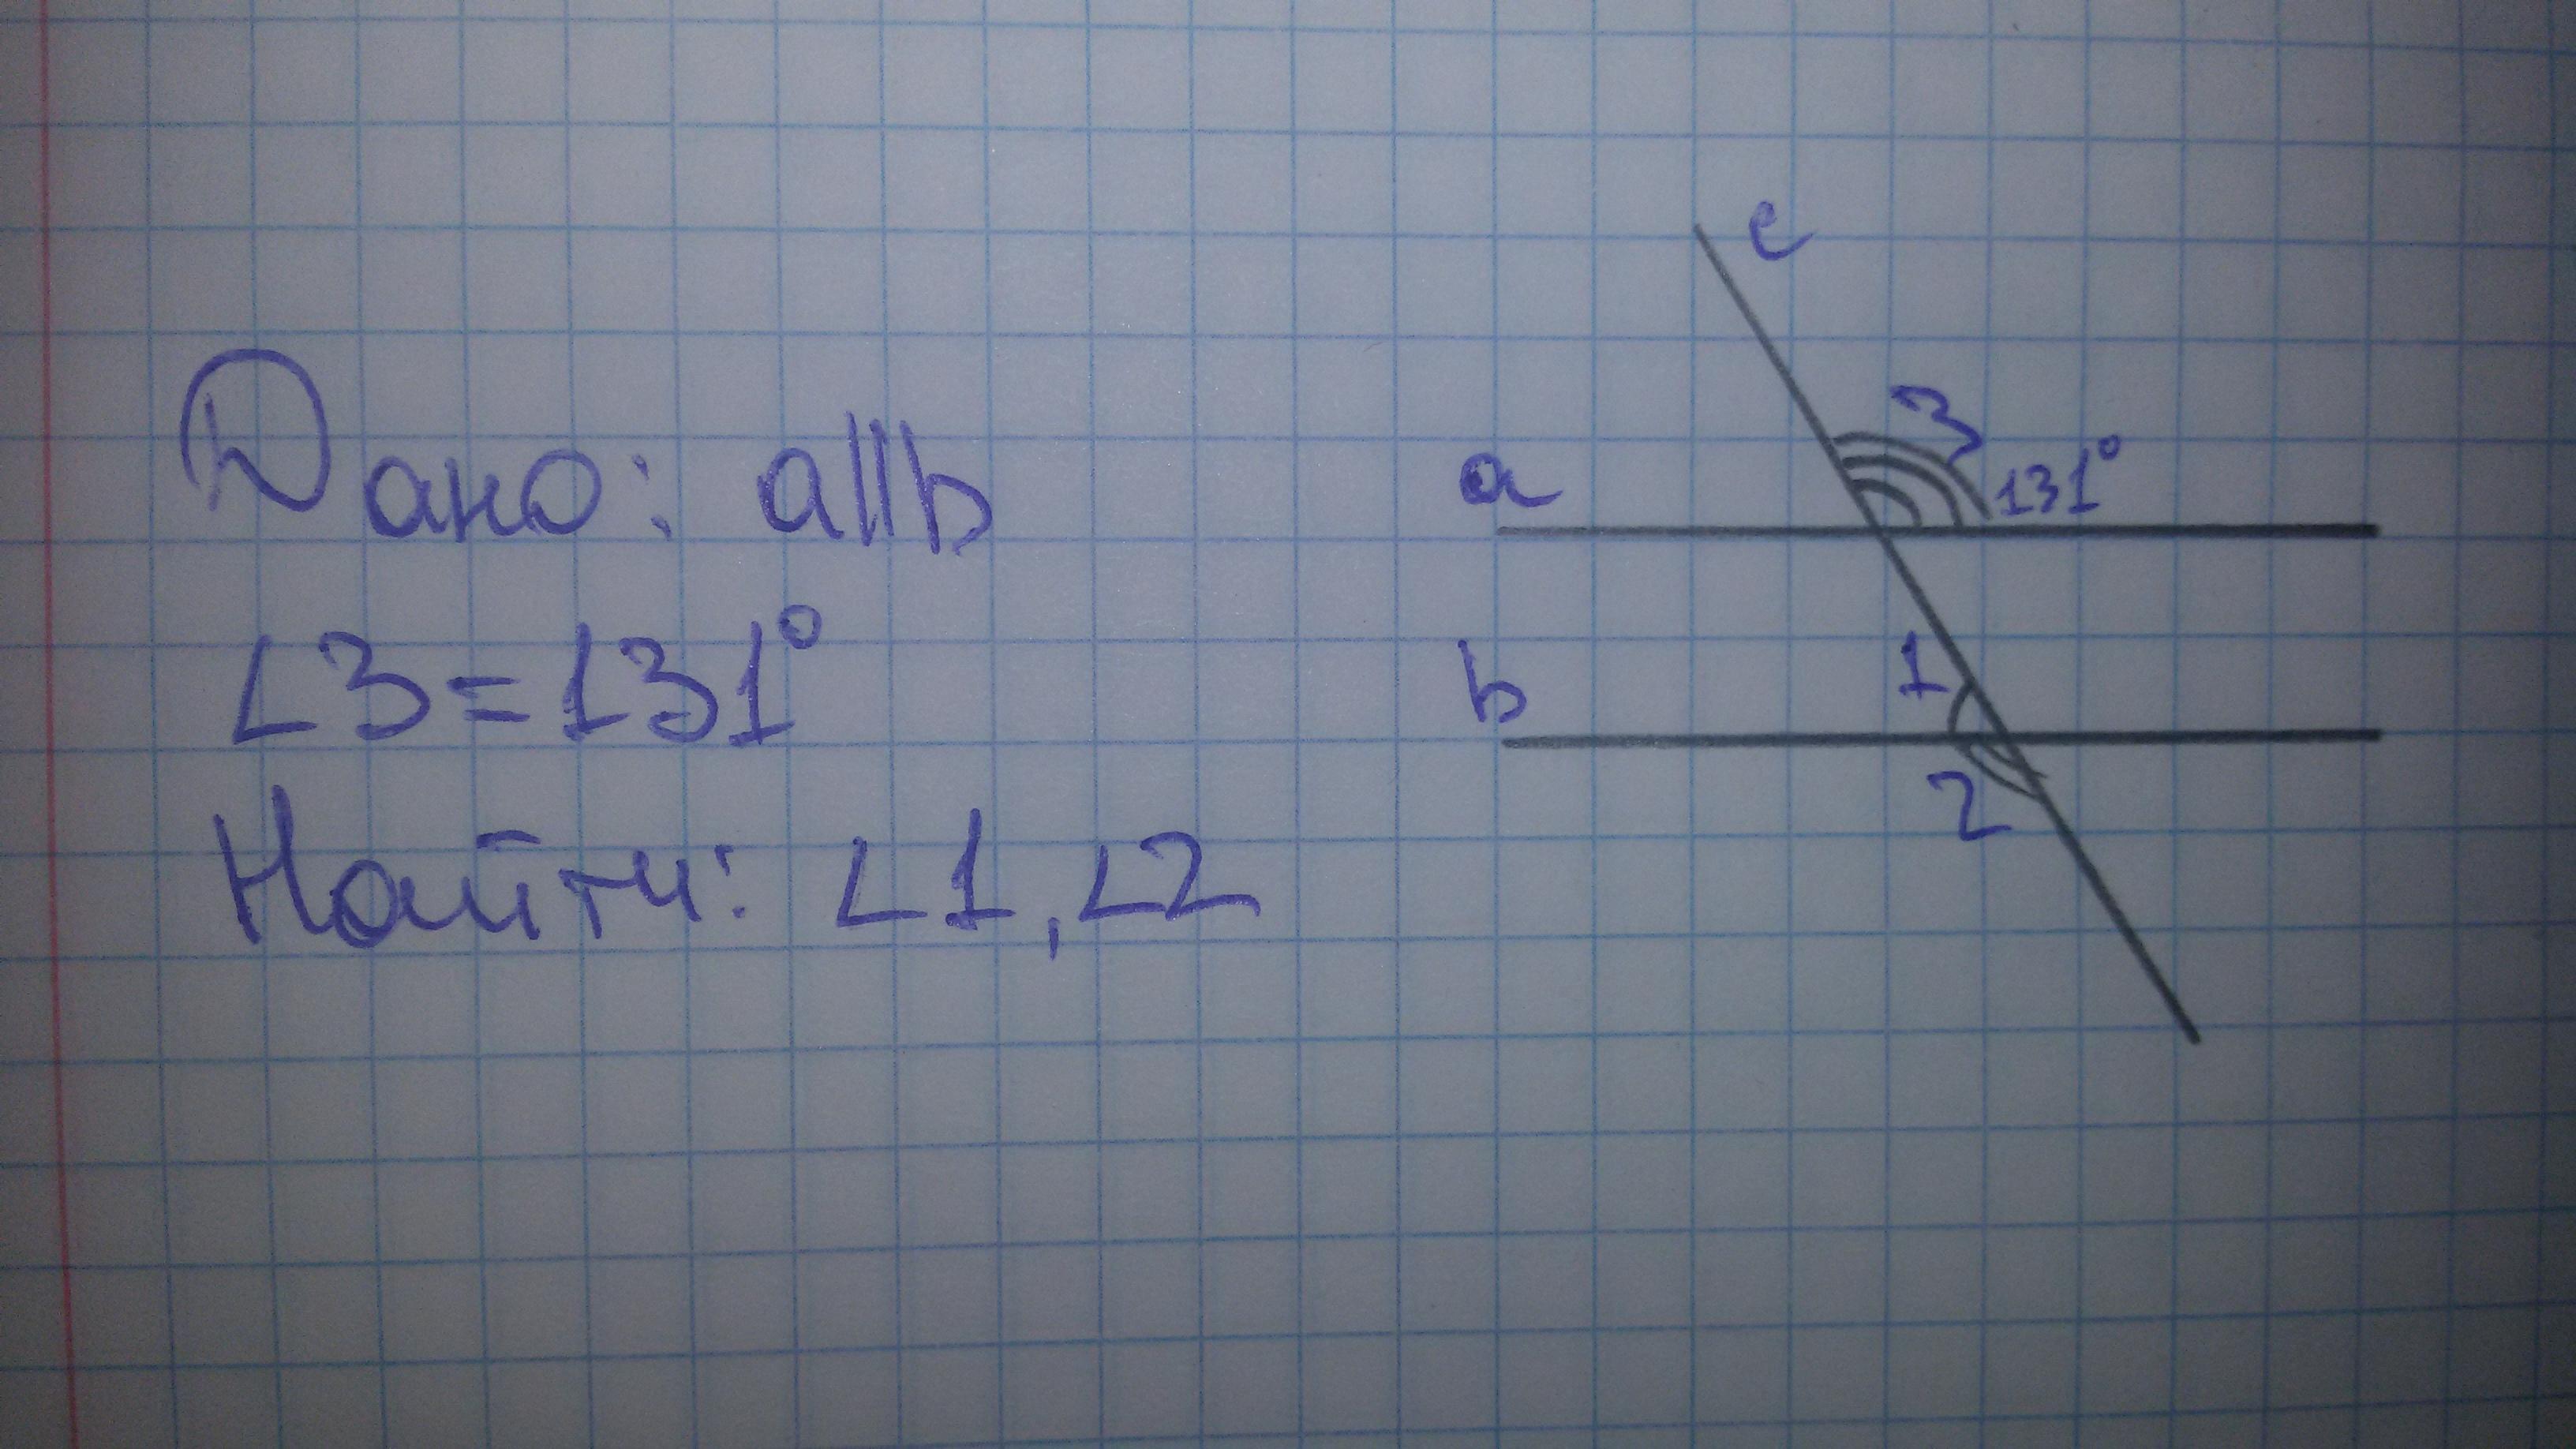 Дано: a||b
∠3=131°
Найти: ∠1, ∠2
c
3
a
131°
1
b
2